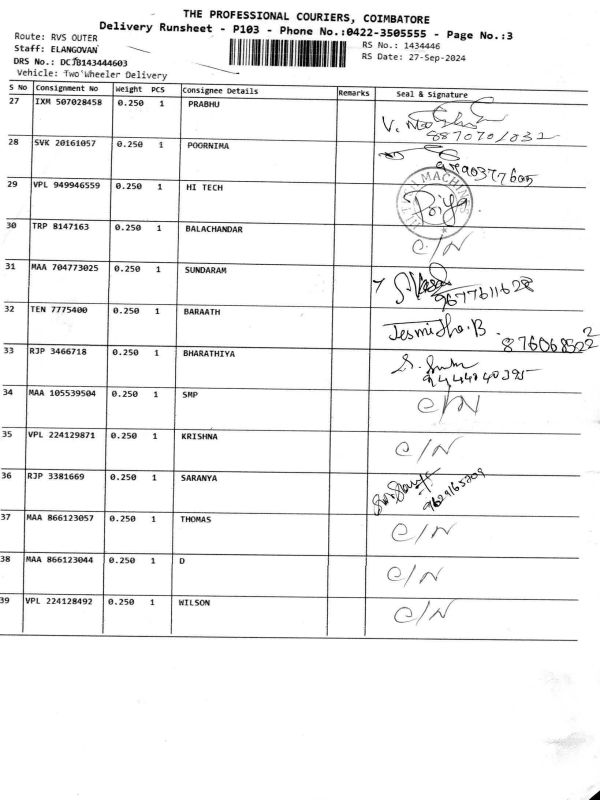 THE PROFESSIONAL COURIERS, COIMBATORE
Delivery Runsheet - P103 - Phone No.:0422-3505555 - Page No.:3
Route: RVS OUTER
RS No.: 1434446
Staff: ELANGOVAN
RS Date: 27-Sep-2024
DRS No.: DCJB143444603
Vehicle: Two Wheeler Delivery
S No Consignment No Weight PCS Consignee Details Remarks Seal & Signature
27 IXM 507028458 0.250 1 PRABHU
28 SVK 20161057 0.250 1 POORNIMA
29 VPL 949946559 0.250 1 HI TECH Priya
30 TRP 8147163 0.250 1 BALACHANDAR C/N
31 MAA 704773025 0.250 1 SUNDARAM 9677611628
32 TEN 7775400 0.250 1 BARAATH Jesmitha.B
33 RJP 3466718 0.250 1 BHARATHIYA
34 MAA 105539504 0.250 1 SMP C/N
35 VPL 224129871 0.250 1 KRISHNA C/N
36 RJP 3381669 0.250 1 SARANYA 9629165209
37 MAA 866123057 0.250 1 THOMAS C/N
38 MAA 866123044 0.250 1 D C/N
39 VPL 224128492 0.250 1 WILSON C/N